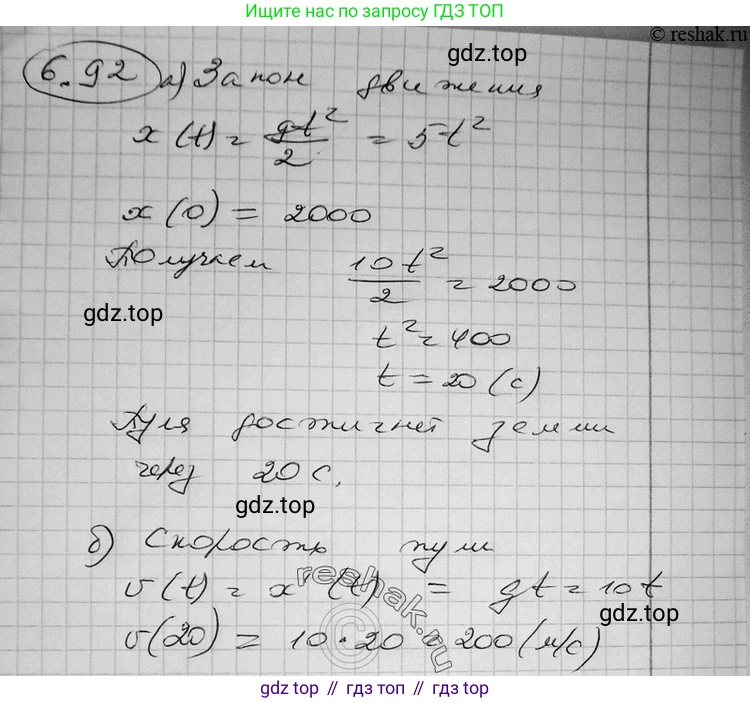 Ищите нас по запросу ГДЗ ТОП
© reshak.ru
6.92 а) Закон движения
gdz.top
x(t) = gt²/2 = 5t²
x(0) = 2000
Получаем 10t²/2 = 2000
gdz.top
t² = 400
t = 20 (с)
Пуля достигнет земли
через 20 с.
gdz.top
б) Скорость пули
v(t) = x'(t) = gt = 10t
reshak.ru
©
gdz.top
v(20) = 10·20 = 200 (м/с)
gdz top // гдз топ // gdz top